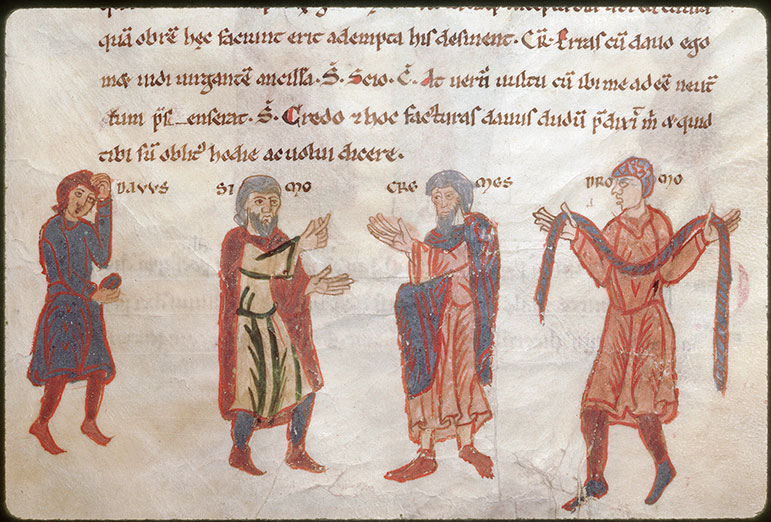 quā obrē hęc faciunt erit adempta his desinent. CR̄. Erras cū dauo ego
uidi iurgantē ancillā. S̄. Scio. C̄. At uerū uultu cū ibi me adeē neut̄
tum p̄s enserat. S̄. Credo & hoc facturas dauus dudū p̄dixı̄ m̄ &
tibi sū oblitꝰ hodie ac uolui dicere.
DAVVS SI MO CRE MES DRO MO